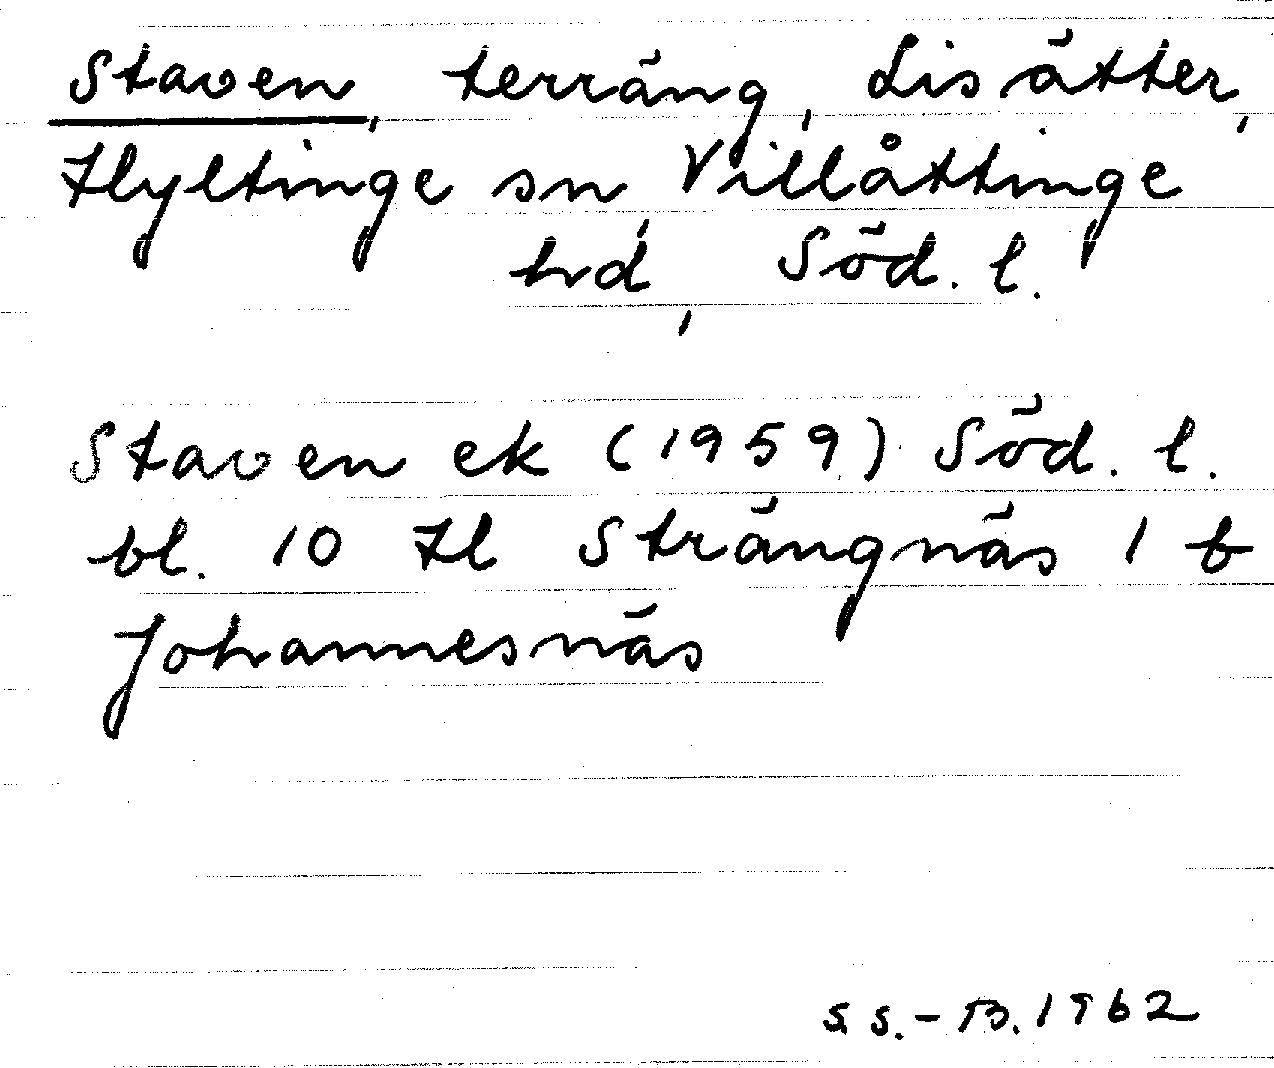 Staven, terräng, Lisätter,
Hyltinge sn, Villåttinge
hd, Söd. l.
Staven ek (1959) Söd. l.
bl. 10 H Strängnäs 1 b
Johannesnäs
S.S.-B. 1962